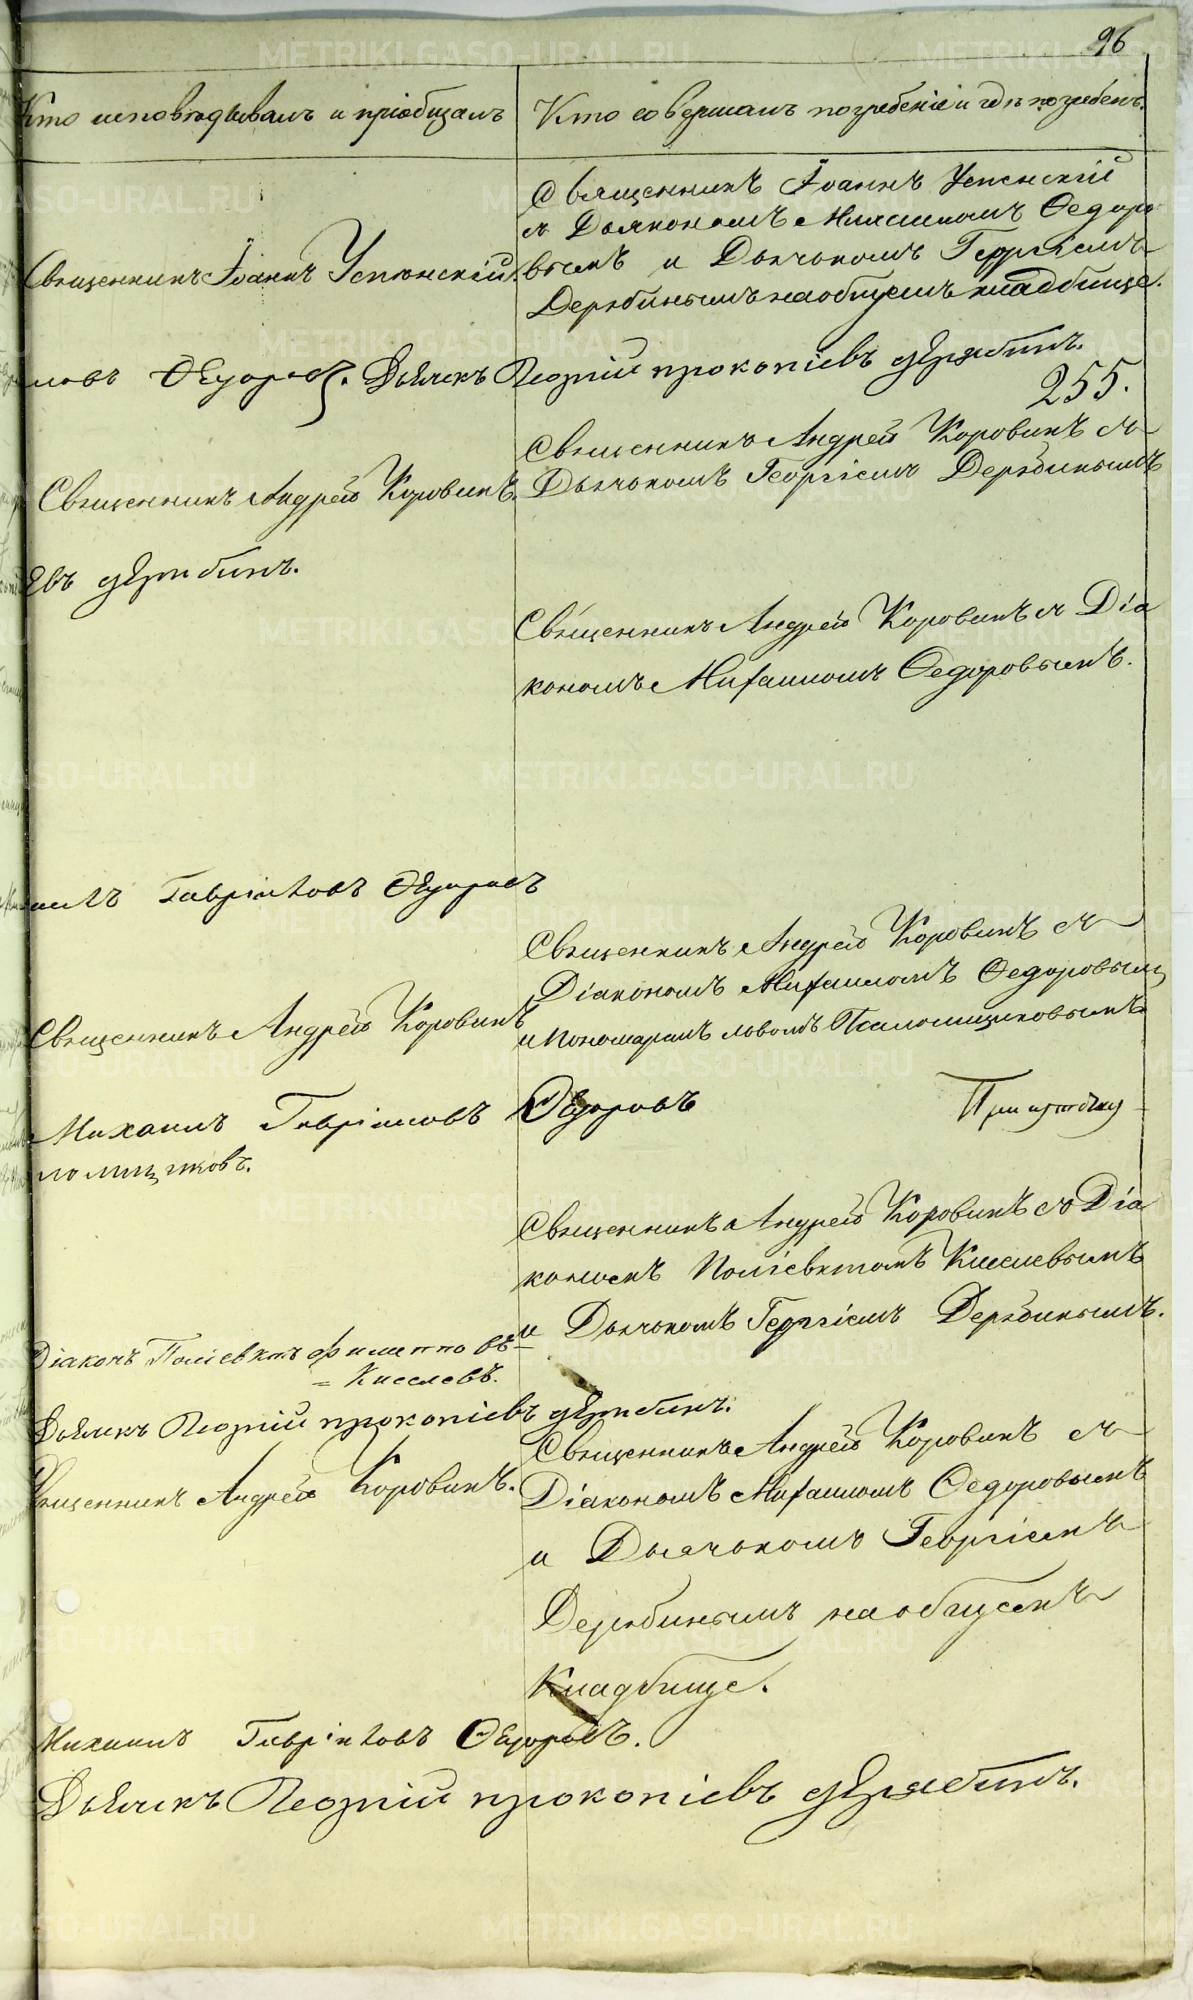 96
Кто исповѣдывалъ и пріобщалъ
Кто совершалъ погребеніе и гдѣ погребенъ.
Священникъ Іоаннъ Успенскій.
Священникъ Іоаннъ Успенскій
съ Дьякономъ Михаиломъ Ѳедоро
вымъ и Дьячькомъ Георгіемъ
Дерябинымъ на общемъ кладбище.
ловъ Ѳедоровъ. Дьячекъ Георгій прокопіевъ дерябинъ.
255.
Священникъ Андрей Коровинъ.
Священникъ Андрей Коровинъ съ
Дьячькомъ Георгіемъ Дерябинымъ
евъ дерябинъ.
Священникъ Андрей Коровинъ съ Діа
кономъ Михаиломъ Ѳедоровымъ.
аилъ Гавріиловъ Ѳедоровъ
Священникъ Андрей Коровинъ
Священникъ Андрей Коровинъ съ
Діакономъ Михаиломъ Ѳедоровымъ
и Пономаремъ Псаломщиковымъ
Михаилъ Гавріиловъ Ѳедоровъ
ломщиковъ.
Священникъ Андрей Коровинъ съ Діа
кономъ Поліевктомъ Киселевымъ
и Дьячькомъ Георгіемъ Дерябинымъ.
Діаконъ Поліевктъ Филипповъ
= Киселевъ.
Дьячекъ Георгій прокопіевъ дерябинъ.
Священникъ Андрей Коровинъ.
Священникъ Андрей Коровинъ съ
Діакономъ Михаиломъ Ѳедоровымъ
и Дьячькомъ Георгіемъ
Дерябинымъ на общемъ
Кладбище.
Михаилъ Гавріиловъ Ѳедоровъ.
Дьячекъ Георгій прокопіевъ дерябинъ.
METRIKI.GASO-URAL.RU